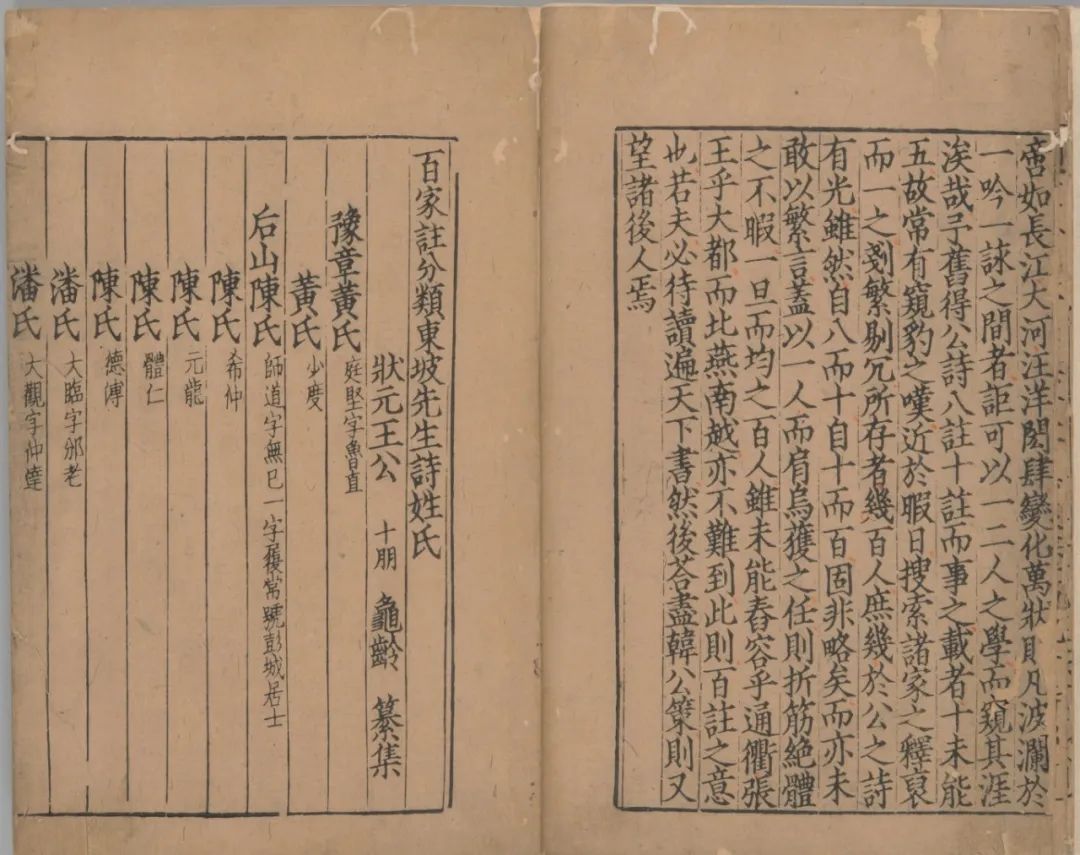 啻如長江大河汪洋閎肆變化萬狀則凡波瀾於
一吟一詠之間者詎可以一二人之學而窺其涯
涘哉予舊得公詩八註十註而事之載者十未能
五故常有窺豹之嘆近於暇日搜索諸家之釋裒
而一之剗繁剔冗所存者幾百人庶幾於公之詩
有光雖然自八而十自十而百固非略矣而亦未
敢以繁言蓋以一人而肩烏獲之任則折筋絶體
之不暇一旦而均之百人雖未能舂容乎通衢張
王乎大都而北燕南越亦不難到此則百註之意
也若夫必待讀遍天下書然後荅盡韓公策則又
望諸後人焉
百家註分類東坡先生詩姓氏
狀元王公 十朋 龜齡 纂集
豫章黃氏 庭堅字魯直
黃氏 少度
后山陳氏 師道字無已一字履常號彭城居士
陳氏 希仲
陳氏 元龍
陳氏 體仁
陳氏 德溥
潘氏 大臨字邠老
潘氏 大觀字仲達